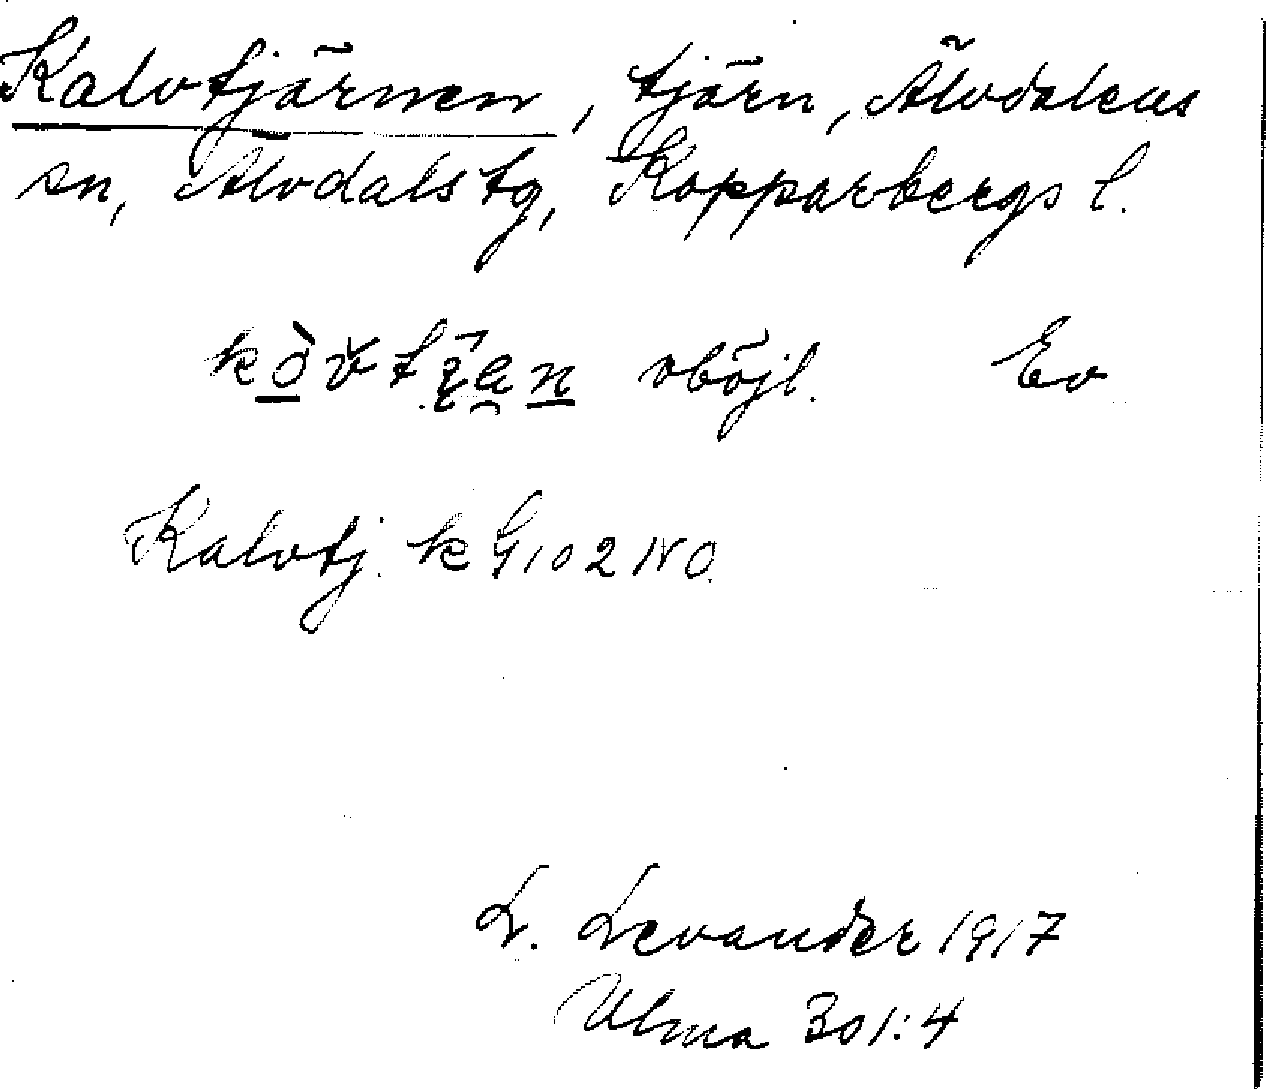 Kalvtjärnen, tjärn, Älvdalens
sn, Älvdals tg, Kopparbergs l.
oböjl. Ev
Kalvtj. k G 102 NO.
L. Levander 1917
Ulma 301:4